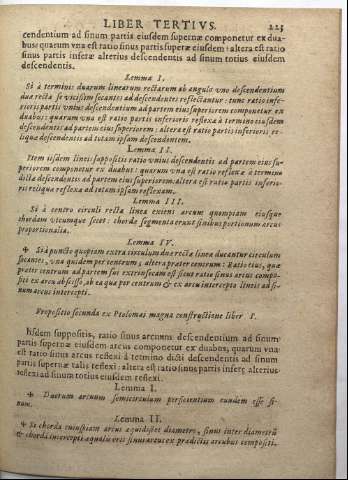 LIBER TERTIVS. 225
cendentium ad sinum partis eiusdem supernæ componetur ex dua-
bus: quarum vna est ratio sinus partis superæ eiusdem: altera est ratio
sinus partis inferæ alterius descendentis ad sinum totius eiusdem
descendentis.
Lemma I.
Si à terminis duarum linearum rectarum ab angulo vno descendentium
duæ rectæ se vicissim secantes ad descendentes reflectantur: tunc ratio infe-
rioris partis vnius descendentium ad partem eius superiorem componetur ex
duabus: quarum vna est ratio partis inferioris reflexæ à termino eiusdem
descendentis ad partem eius superiorem: altera est ratio partis inferioris re-
liquæ descendentis ad totam ipsam descendentem.
Lemma II.
Item iisdem lineis suppositis ratio vnius descendentis ad partem eius su-
periorem componetur ex duabus: quarum vna est ratio reflexæ à termino
dictæ descendentis ad partem eius superiorem: altera est ratio partis inferio-
ris reliquæ reflexæ ad totam ipsam reflexam.
Lemma III.
Si à centro circuli recta linea exiens arcum quempiam eiusque
chordam vtcumque secet: chordæ segmenta erunt sinibus portionum arcus
proportionalia.
Lemma IV.
✠ Si à puncto quopiam extra circulum duæ rectæ lineæ ducantur circulum
secantes, vna quidem per centrum, altera præter centrum: Ratio eius, quæ
præter centrum ad partem sui extrinsecam est sicut ratio sinus arcus compo-
siti ex arcu abscisso, ab ea quæ per centrum & ex arcu intercepto lineis ad si-
num arcus intercepti.
Propositio secunda ex Ptolomæi magna constructione liber I.
Iisdem suppositis, ratio sinus arcuum descendentium ad sinum
partis supernæ eiusdem arcus componetur ex duabus, quarum vna
est ratio sinus arcus reflexi à termino dicti descendentis ad sinum
partis supernæ talis reflexi: altera est ratio sinus partis inferæ alterius
reflexi ad sinum totius eiusdem reflexi.
Lemma I.
✠ Duorum arcuum semicirculum perficientium eundem esse si-
num.
Lemma II.
✠ Si chorda cuiuspiam arcus æquidistet diametro, sinus inter diametrũ
& chordã intercepti æqualis erit sinus arcus ex prædictis arcubus compositi.